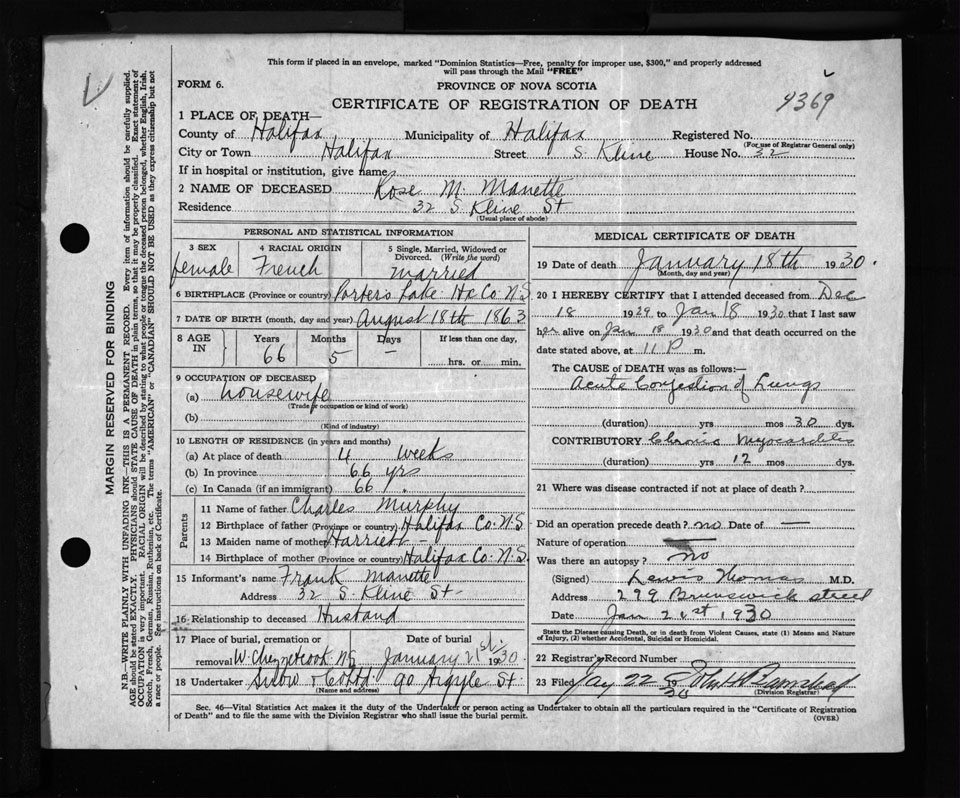 This form if placed in an envelope, marked "Dominion Statistics—Free, penalty for improper use, $300," and properly addressed
will pass through the Mail "FREE"
FORM 6.
PROVINCE OF NOVA SCOTIA
CERTIFICATE OF REGISTRATION OF DEATH
4369
1 PLACE OF DEATH—
County of Halifax Municipality of Halifax Registered No.
(For use of Registrar General only)
City or Town Halifax Street S. Kline House No. 32
If in hospital or institution, give name
2 NAME OF DECEASED Rose M. Manette
Residence 32 S. Kline St
(Usual place of abode)
PERSONAL AND STATISTICAL INFORMATION
3 SEX 4 RACIAL ORIGIN 5 Single, Married, Widowed or Divorced. (Write the word)
female French married
6 BIRTHPLACE (Province or country) Porters Lake Hx Co N.S.
7 DATE OF BIRTH (month, day and year) August 18th 1863
8 AGE IN Years Months Days If less than one day,
66 5 — hrs. or min.
9 OCCUPATION OF DECEASED
(a) housewife
(Trade or occupation or kind of work)
(b)
(Kind of industry)
10 LENGTH OF RESIDENCE (in years and months)
(a) At place of death 4 weeks
(b) In province 66 yrs
(c) In Canada (if an immigrant) 66
Parents
11 Name of father Charles Murphy
12 Birthplace of father (Province or country) Halifax Co. N.S.
13 Maiden name of mother Harriett —
14 Birthplace of mother (Province or country) Halifax Co. N.S.
15 Informant's name Frank Manette
Address 32 S. Kline St
16 Relationship to deceased Husband
17 Place of burial, cremation or Date of burial
removal W. Chezzetcook N.S. January 21st 1930
18 Undertaker Snow & Co Ltd. 90 Argyle St.
(Name and address)
MEDICAL CERTIFICATE OF DEATH
19 Date of death January 18th 1930.
(Month, day and year)
20 I HEREBY CERTIFY that I attended deceased from Dec
18 1929 to Jan 18 1930 that I last saw
her alive on Jan 18 1930 and that death occurred on
date stated above, at 11 P m.
The CAUSE of DEATH was as follows:—
Acute Congestion of Lungs
(duration) yrs mos 30 dys.
CONTRIBUTORY Chronic Myocarditis
(duration) yrs 12 mos dys.
21 Where was disease contracted if not at place of death?
Did an operation precede death? no Date of —
Nature of operation
Was there an autopsy? no
(Signed) Lewis Thomas M.D.
Address 299 Brunswick street
Date Jan 21st 1930
State the Disease causing Death, or in death from Violent Causes, state (1) Means and Nature
of Injury, (2) whether Accidental, Suicidal or Homicidal.
22 Registrar's Record Number
23 Filed Jany 22 1930 John A
(Division Registrar)
Sec. 46—Vital Statistics Act makes it the duty of the Undertaker or person acting as Undertaker to obtain all the particulars required in the "Certificate of Registration
of Death" and to file the same with the Division Registrar who shall issue the burial permit.
(OVER)
MARGIN RESERVED FOR BINDING
N.B.—WRITE PLAINLY WITH UNFADING INK—THIS IS A PERMANENT RECORD. Every item of information should be carefully supplied.
AGE should be stated EXACTLY. PHYSICIANS should STATE CAUSE OF DEATH in plain terms, so that it may be properly classified. Exact statement of
OCCUPATION is very important. RACIAL ORIGIN will be described by stating to what people or tongue the deceased person belonged, whether English, Irish,
Scotch, French, German, Russian, Ruthenian, etc. The terms "AMERICAN" or "CANADIAN" SHOULD NOT BE USED as they express citizenship but not
a race or people. See instructions on back of Certificate.